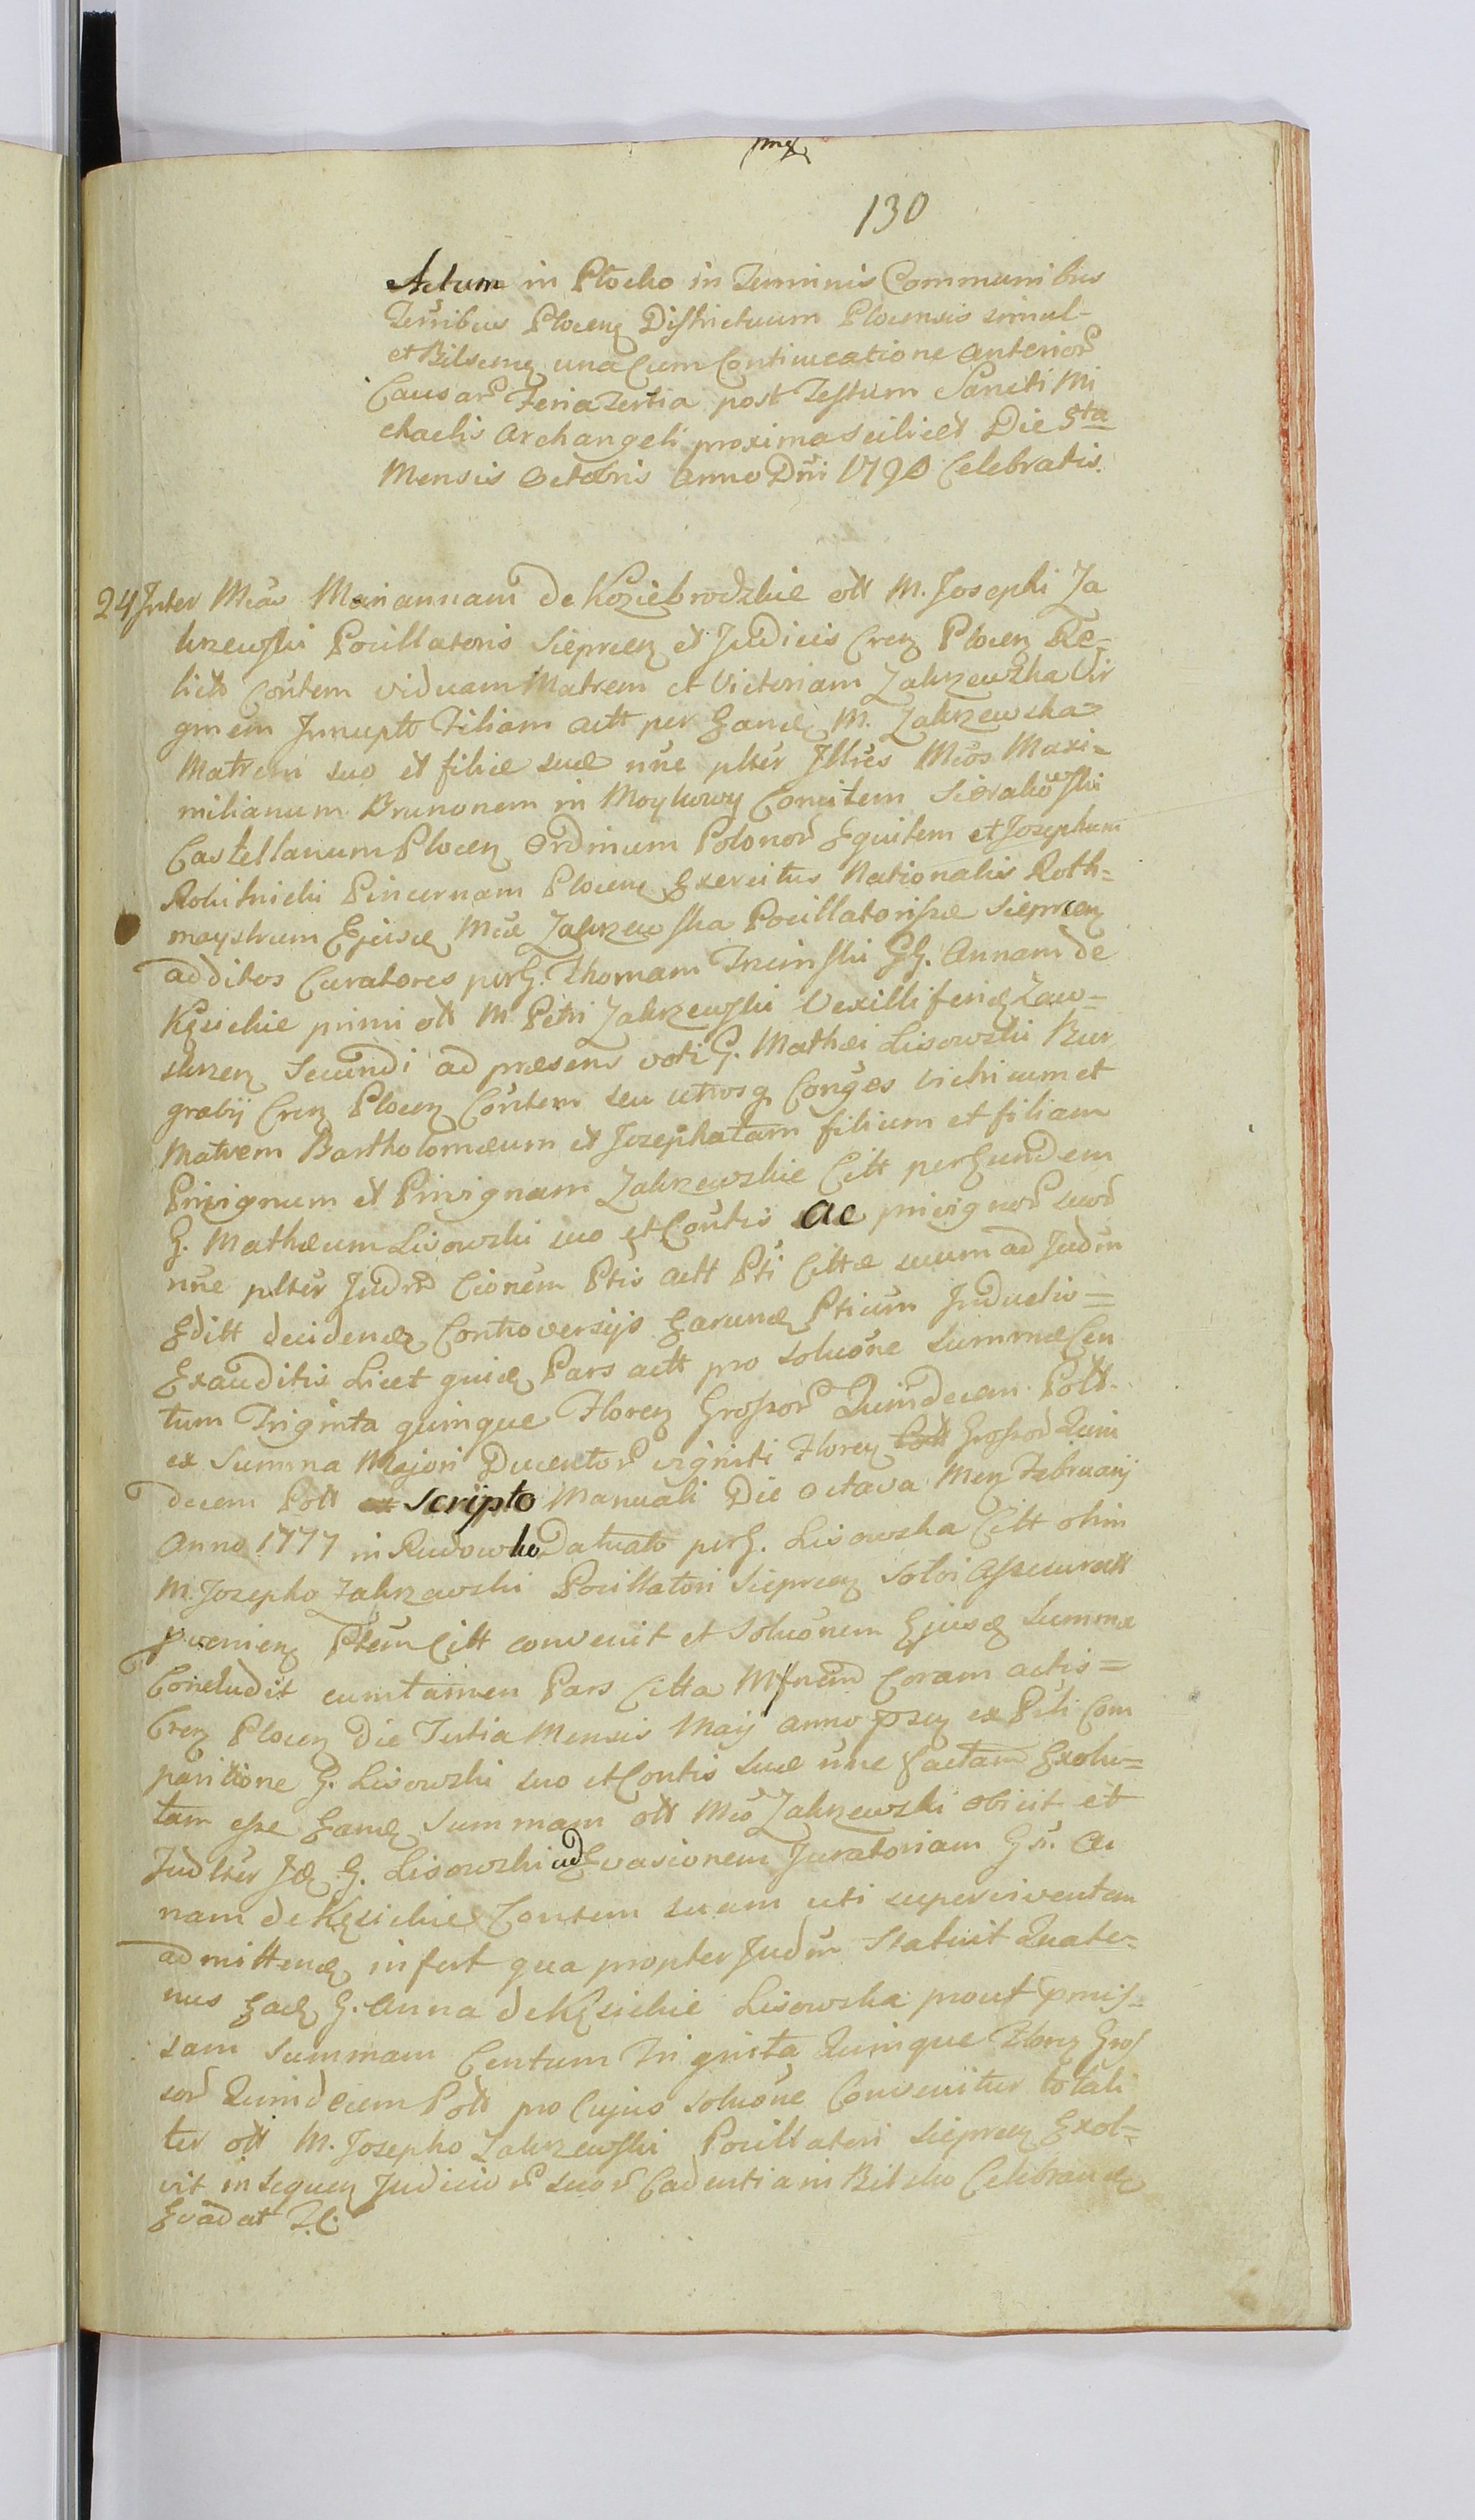 130
Actum in Płocko in Terminis Communibus
Terribus Plocen Districtuum Plocensis simul
et Bilscen una Cum Continuatione anterior
Causar Feria Tertia post Festum Sancti Mi
chaelis Archangeli proxima scilicet Die 5ta
Mensis Octobris Anno Dni 1790 Celebratis.
24 Inter Mcas Mariannam de Koziebrodzkie olt M. Josephi Za
krzewski Pocillatoris Sieprcen et Judicis Cren Plocen Re-
lict Contem viduam Matrem et Victoriam Zakrzewska Vir
ginem Innupt Filiam actt per Eand M. Zakrzewska
Matrem suo et filiae suae nne plter Illres Mcos Maxi=
milianum Brunonem in Moykowy Comitem Sierakowski
Castellanum Plocen Ordinum Polonor Equitem et Josephum
Rokitnicki Pincernam Plocen Exercitus Nationalis Roth=
maystrum Ejusd Mcae Zakrzewska Pocillatorissae Sieprcen
additos Curatores per G. Thomam Trcinski GG. Annam de
Kęsickie primi olt M Petri Zakrzewski Vexilliferid Zaw=
skrzen Secundi ad praesens voti G. Mathaei Lisowski Bur
grabij Cren Plocen Contem seu utrosq Conges Vichicum et
Matrem Bartholomaeum et Jozephatam filium et filiam
Privignum et Privignam Zakrzewskie Citt per Eundem
G. Mathaeum Lisowski suo et Contis ac privignor suor
nne plter Judrd Cionem Ptis actt Pti Cittae suum ad Judm
Editt decidend Controversijs Earund Ptium Inductis=
Exauditis Licet quid Pars actt pro solucone summae Cen
tum Triginta quinque Floren Grossor Quindecem Poltt
ex Summa Majori Ducentor viginti Floren Grossor Quin
decem Poltt Scripto Manuali Die Octava Men Februarij
Anno 1777 in Rudowko Datuato per G. Lisowska Citt olim
M. Jozepho Zakrzewski Pocillatori Sieprcen Solvi Assecuratt
pvenien Ptem Citt convenit et Solucionem Ejusd Summae
Concludit cum tamen Pars Citta Coram actis=
Cren Plocen Die Tertia Mensis Maij Anno psen ex Pcti Com
paritione G. Lisowski suo et Contis suae nne factam Exolu=
tam esse Eand Summam olt Mco Zakrzewski obicit et
Judlter Id G. Lisowski ad Evasionem Juratoriam Gn. An
nam de Kęsickie Contem suam uti superviventem
admittend infert qua propter Judm Statuit Quate=
nus Ead G. Anna de Kęsickie Lisowska prout pmis=
sam Summam Centum Triginta Quinque Floren Gros
sor Quindecem Poltt pro Cujus solucone Convenitur totali
ter olt M. Jozepho Zakrzewski Pocillatori Sieprcen Exol=
vit in sequen Judicior suor Cadentia in Bilsko Celebrand
Evadat